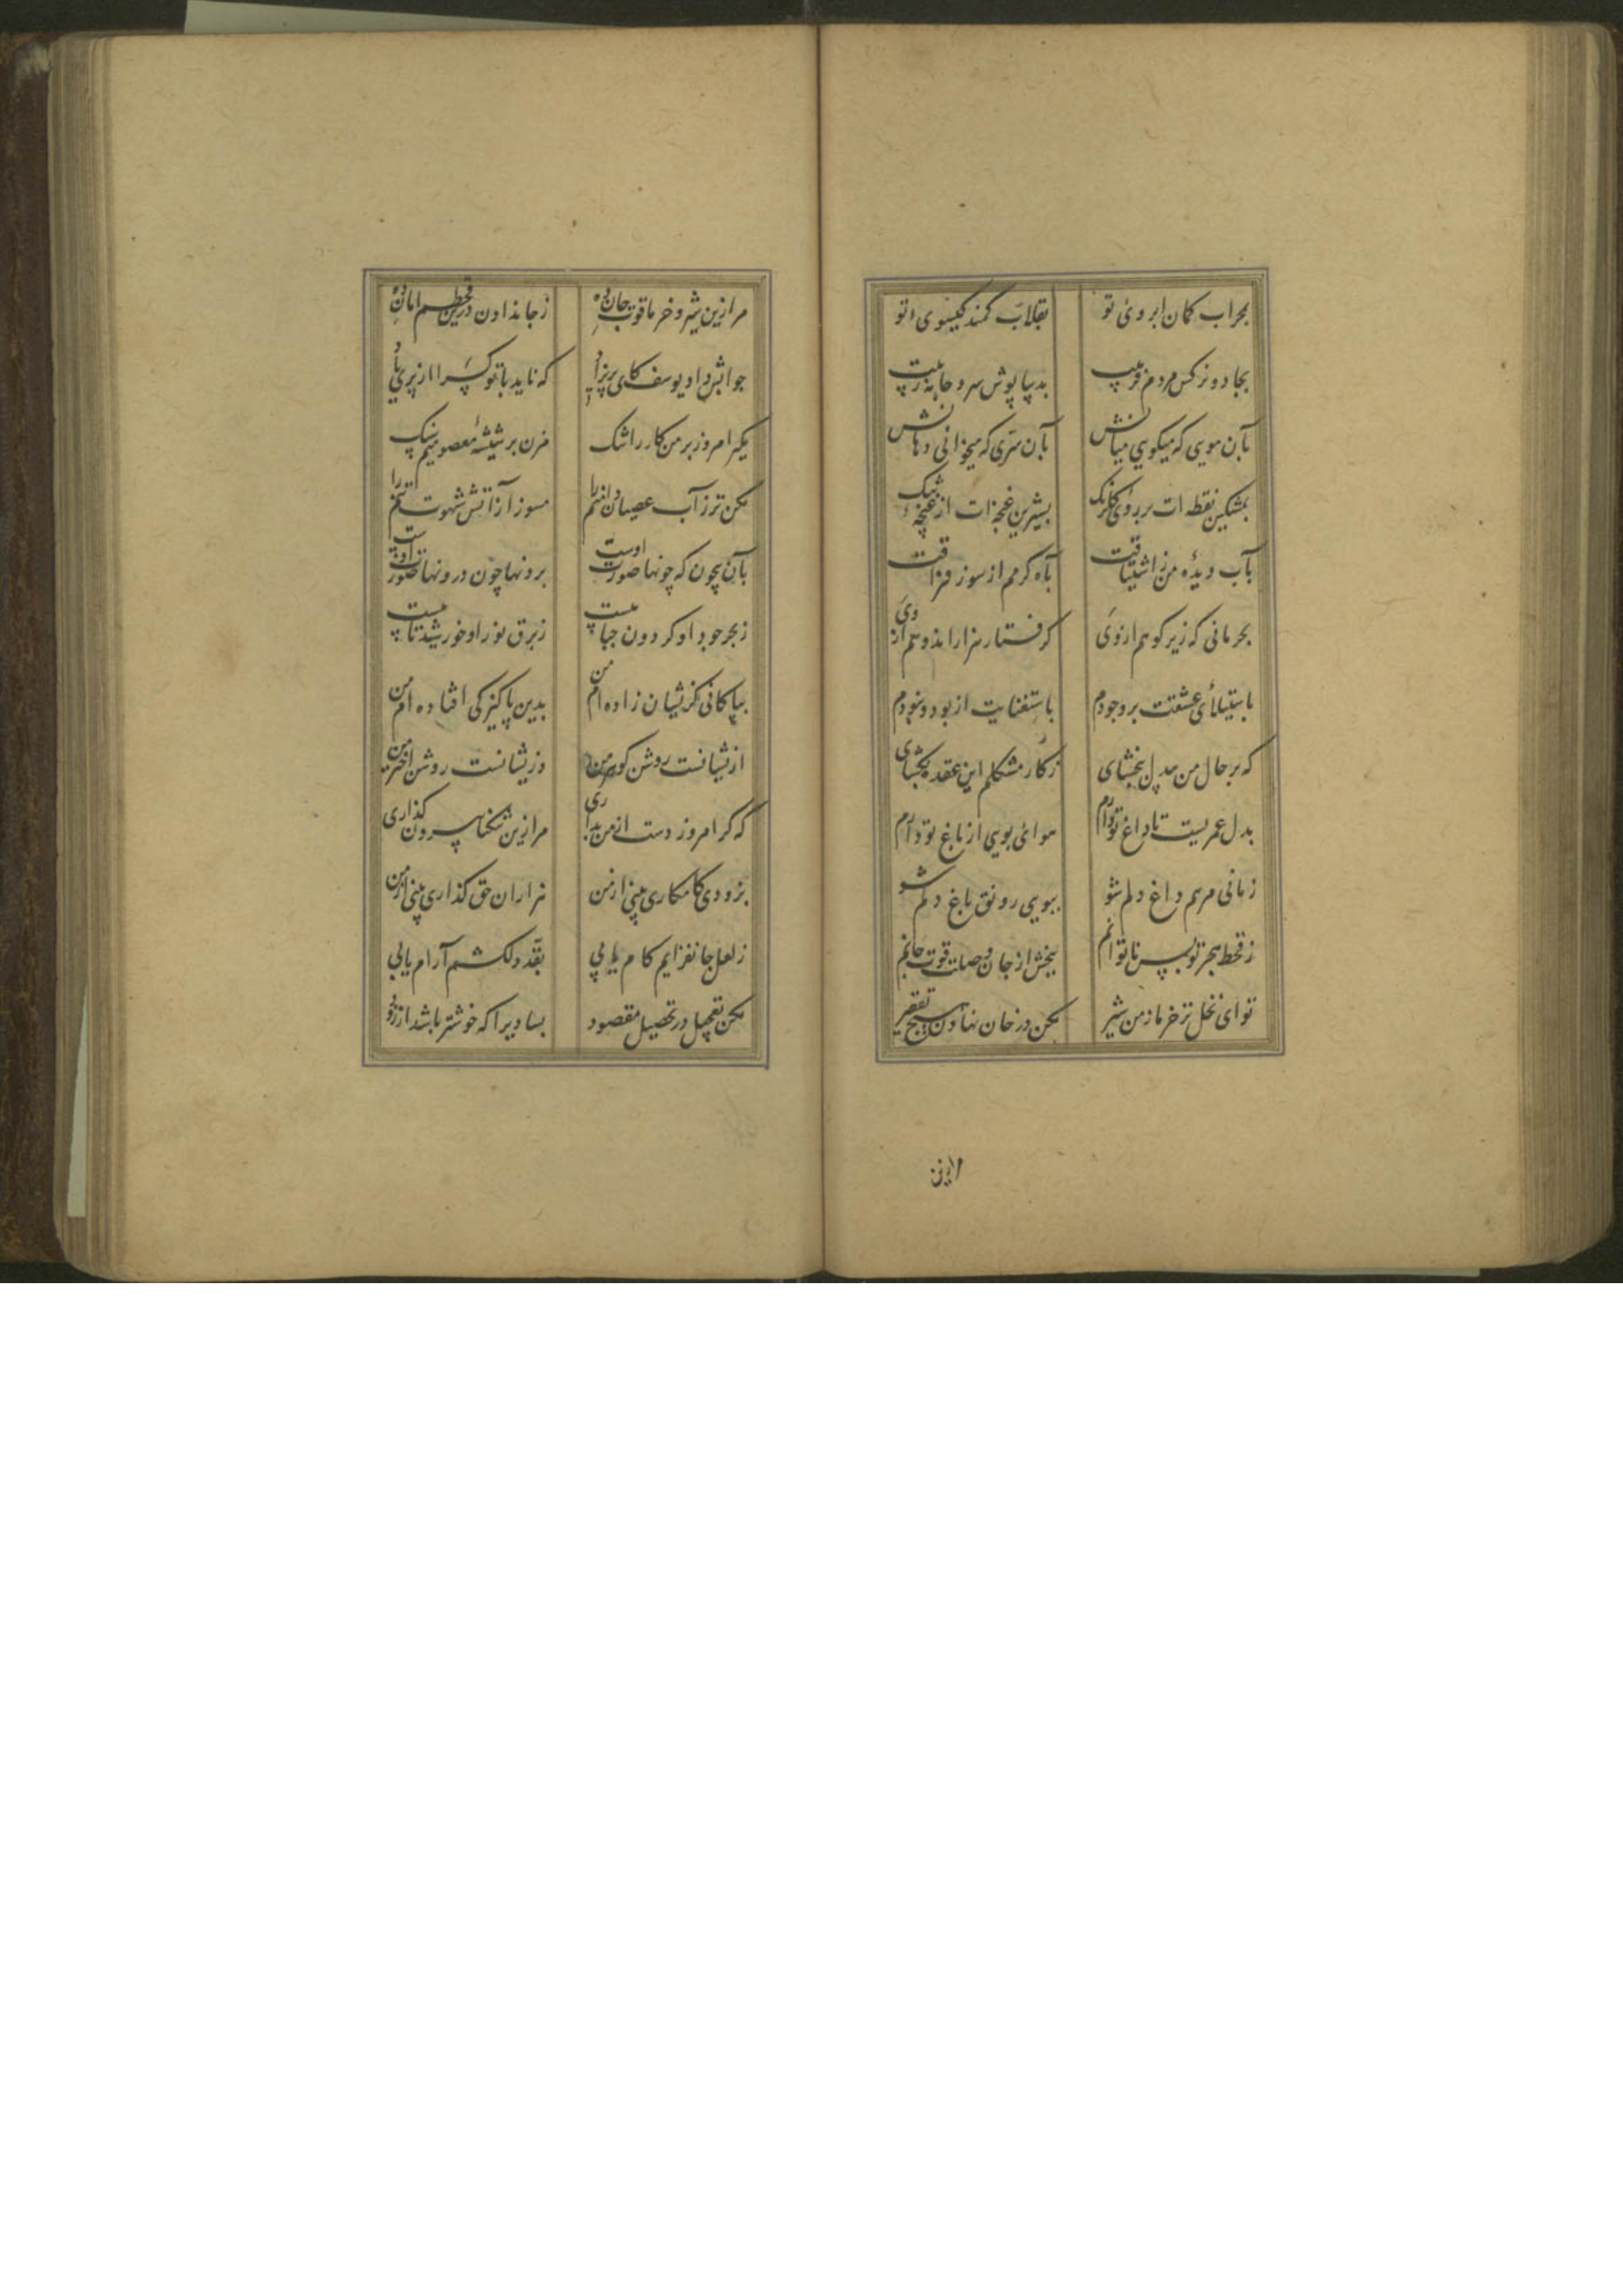 بمحراب کمان ابروی تو بقلاب کمند کیسوی تو
بجادو نرکس مردم فریبت بدیبا پوش سرو جامه زیبت
بآن مویی که میکویی میانش بآن سری که میخوانی دهانش
بمشکین نقطه ات بر روی کلرنک بشیرین غنچه ات از غنچه تنک
بآب دیده من ز اشتیاقت بآه کرمم از سوز فراقت
بحرمانی که زیر کوهم از وی کرفتار هزار اندوهم از وی
باستیلای عشقت بر وجودم باستغنایت از بود و نبودم
که بر حال من بیدل ببخشای ز کار مشکلم این عقده بکشای
بدل عمریست تا داغ تو دارم هوای بویی از باغ تو دارم
زمانی مرهم داغ دلم شو ببویی رونق باغ دلم شو
ز قحط هجر تو بس ناتوانم ببخش از خوان وصلت قوت جانم
تو ای نخل تر خرما ز من شیر مکن در خان نهادن هیچ تقصیر
مرا زین شیر و خرما قوت جان ده ز جان دادن درین قحطم امان ده
جوابش داد یوسف کای پریزاد که ناید با تو کس را از پری یاد
مکیر امروز بر من کار را تنک مزن بر شیشه معصومیم سنک
مکن تر ز آب عصیان دامنم را مسوز از آتش شهوت تنم را
بآن بیچون که چونها صورت اوست برونها چون درونها صورت اوست
ز بحر جود او کردون حبابیست ز برق نور او خورشید تابیست
بپاکانی کزیشان زاده ام من بدین پاکیزکی افتاده ام من
ازیشانست روشن کوهر من وزیشانست روشن اختر من
که کر امروز دست از من بداری مرا زین تنکنا بیرون کذاری
بزودی کامکاری بینی از من هزاران حق کذاری بینی از من
ز لعل جانفزایم کام یابی بقد دلکشم آرام یابی
مکن تعجیل در تحصیل مقصود بسا دیرا که خوشتر باشد از زود